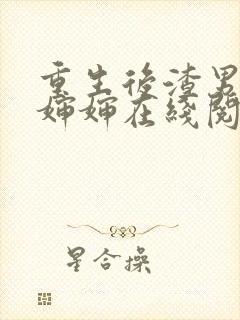 重生后渣男
婶婶在线阅
星合操